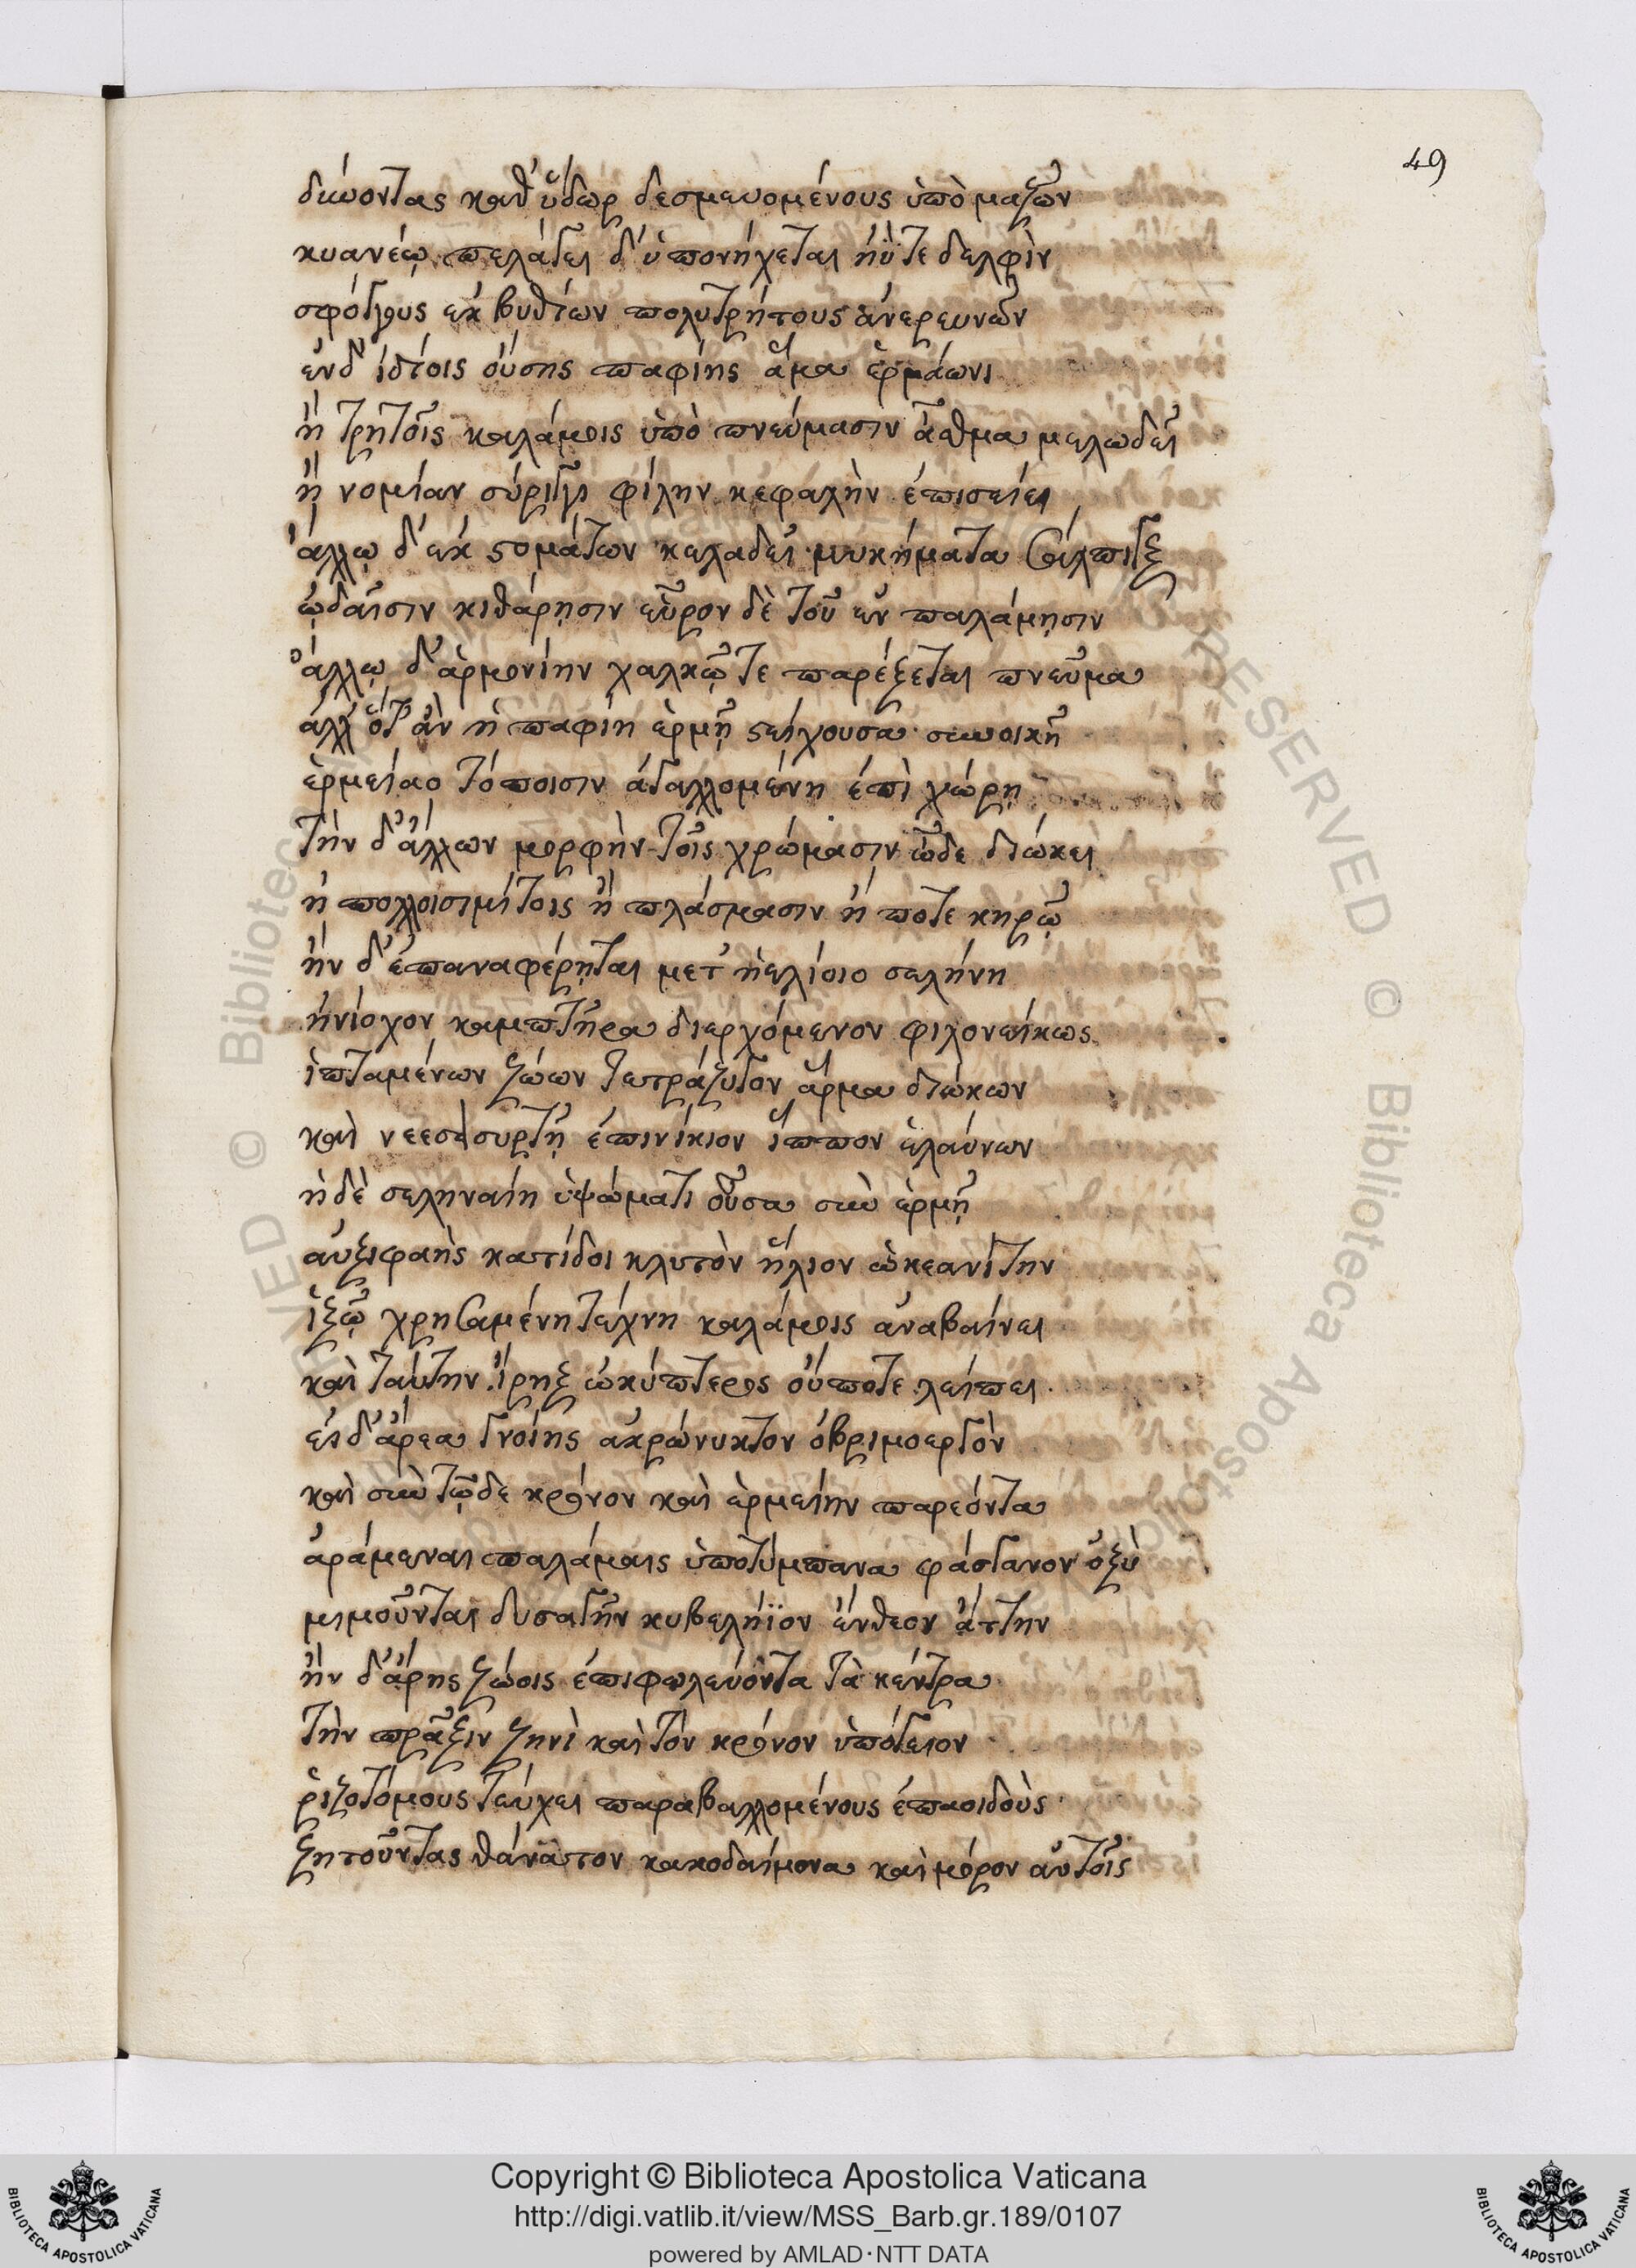 49
διώοντας καθ' ὕδωρ δεσμευομένους ὑπὸ μαζῶν
κυανέῳ πελάγει δ' ὑπονήχεται ἠΰτε δελφὶν
σπόγγους ἐκ βυθίων πολυτρήτους ἀνερευνῶν
ἐν δ' ἰδίοις οὔσης παφίης ἅμα ἑρμάωνι
ἢ τρητοῖς καλάμοις ὑπὸ πνεύμασιν ἆσθμα μελωδεῖ
ἢ νομίαν σύριγγι φίλην κεφαλὴν ἐπισείει
ἄλλῳ δ' ἐκ στομάτων κελαδεῖ μυκήματα σάλπιγξ
ᾠδαῖσιν κιθάρῃσιν εὗρον δὲ τοῦ ἐν παλάμῃσιν
ἄλλῳ δ' ἁρμονίην χαλκῷ τε παρέξεται πνεῦμα
ἀλλ' ὅτ' ἂν ἡ παφίη ἑρμῇ στείχουσα συνοικῇ
ἑρμείαο τόποισιν ἀγαλλομένη ἐπὶ χώρῃ
τὴν δ' ἄλλων μορφὴν τοῖς χρώμασιν ὧδε διώκει
ἢ πολλοισιμίτοις ἢ πλάσμασιν ἤ ποτε κηρῷ
ἢν δ' ἐπαναφέρηται μετ' ἠελίοιο σελήνη
ἡνίοχον καμπτῆρα διερχόμενον φιλονείκως
ἱπταμένων ζώων τετράζυγον ἅρμα διώκων
καὶ νεεσσυρτῇ ἐπινίκιον ἵππον ἐλαύνων
ἡ δὲ σεληναίη ὑψώματι οὖσα σὺν ἑρμῇ
αὐξιφαὴς κατίδοι κλυτὸν ἥλιον ὠκεανίτην
ἰξῷ χρησαμένη τέχνη καλάμοις ἀναβαίνει
καὶ ταύτην ἴρηξ ὠκύπτερος οὔποτε λείπει
εἰ δ' ἄρεα γνοίης ἀκρώνυκτον ὀβριμοεργὸν
καὶ σὺν τῷδε κρόνον καὶ ἑρμείην παρεόντα
ἀράμεναι παλάμαις ὑποτύμπανα φάσγανον ὀξὺ
μιμοῦνται δυσαγῆν κυβελήϊον ἔνθεον ἄττην
ἢν δ' ἄρης ζώοις ἐπιφωλεύοντα τὰ κέντρα
τὴν πρᾶξιν ζηνὶ καὶ τὸν κρόνον ὑπόγειον
ῥιζοτόμους τεύχει παραβαλλομένους ἐπαοιδοὺς
ζητοῦντας θάνατον κακοδαίμονα καὶ μόρον αὐτοῖς
Copyright © Biblioteca Apostolica Vaticana
http://digi.vatlib.it/view/MSS_Barb.gr.189/0107
powered by AMLAD·NTT DATA